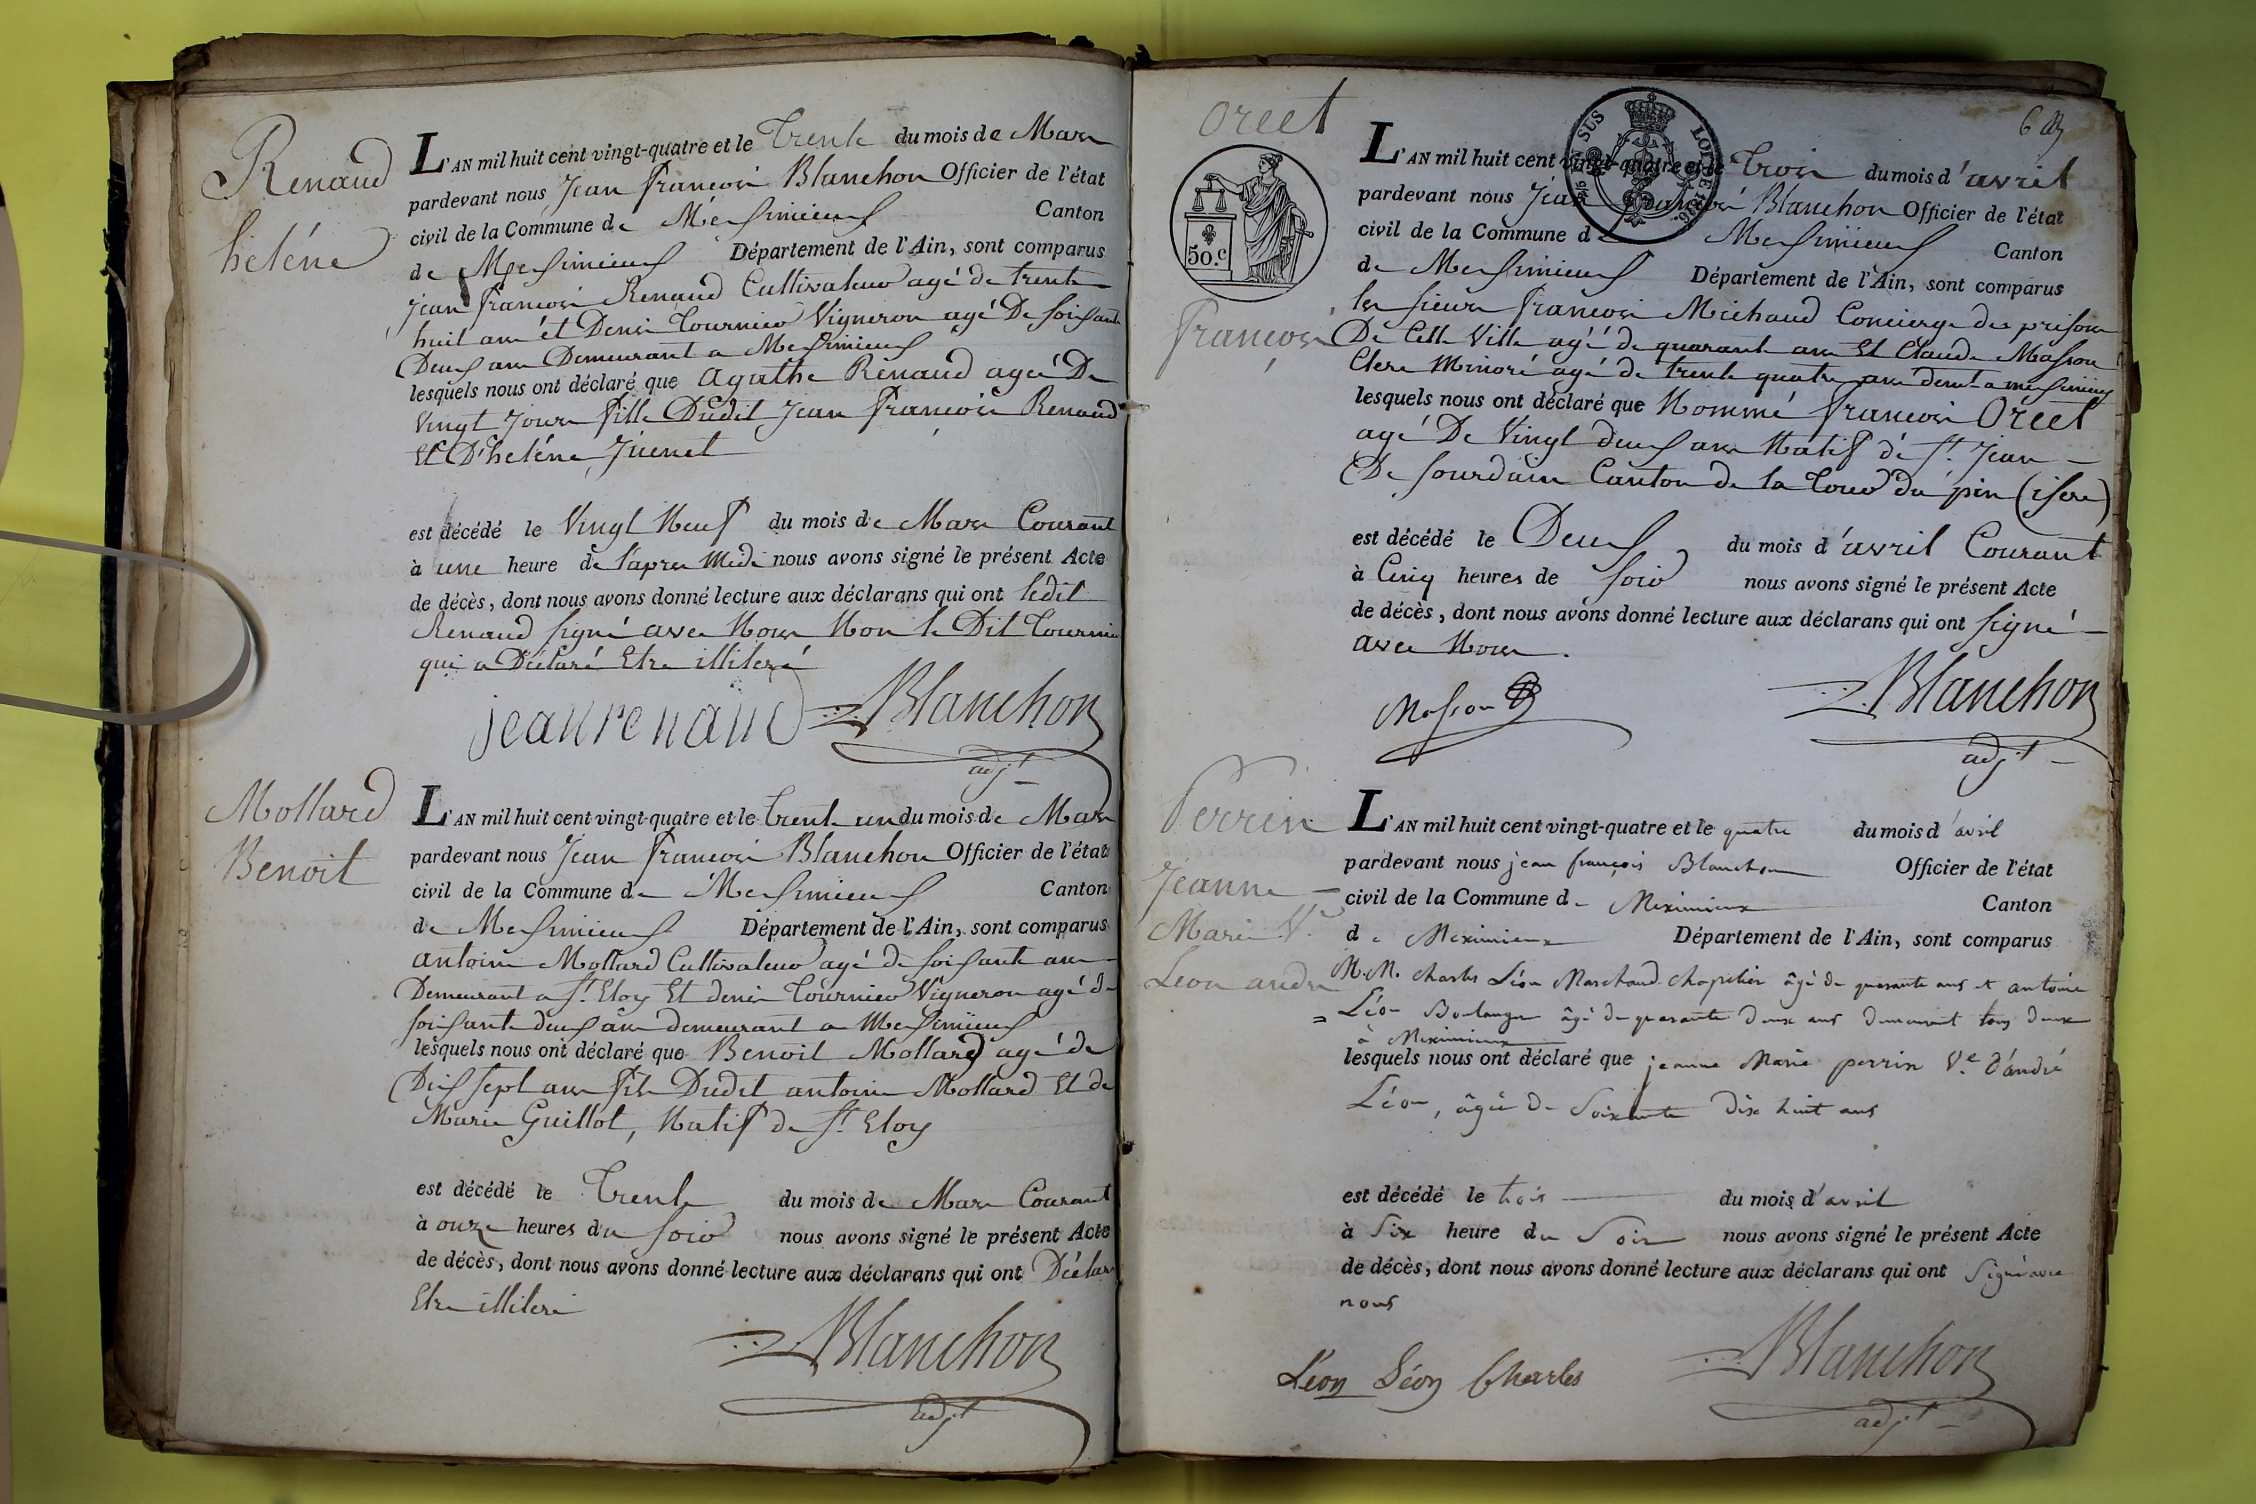 Renaud
héléne
L'AN mil huit cent vingt-quatre et le Trente du mois de Mars
pardevant nous Jean françois Blanchon Officier de l'état
civil de la Commune de Messimieux Canton
de Messimieux Département de l'Ain, sont comparus
Jean françois Renaud Cultivateur agé de trente
huit ans et Denis Tournier Vigneron agé De soisante
Deux ans Demeurant a Messimieux
lesquels nous ont déclaré que agathe Renaud ageé De
Vingt Jours fille Dudit Jean françois Renaud
Et D'heléne Juenet
est décédé le Vingt Neuf du mois de Mars Courant
à une heure de l'apres Midi nous avons signé le présent Acte
de décès, dont nous avons donné lecture aux déclarans qui ont ledit
Renaud signé avec Nous Non le Dit Tournier
qui a Déclaré Etre illiteré
jean renaud Blanchon
adjt
Mollard
Benoit
L'AN mil huit cent vingt-quatre et le Trente un du mois de Mars
pardevant nous Jean françois Blanchon Officier de l'état
civil de la Commune de Messimieux Canton
de Messimieux Département de l'Ain, sont comparus
antoine Mollard Cultivateur agé de soisante ans
Demeurant a St. Eloy Et denis Tournier Vigneron agé de
soisante deux ans demeurant a Messimieux
lesquels nous ont déclaré que Benoit Mollard agé de
Dix sept ans fils Dudit antoine Mollard Et de
Marie Guillot, Natif de St. Eloy
est décédé le Trente du mois de Mars Courant
à onze heures du soir nous avons signé le présent Acte
de décès, dont nous avons donné lecture aux déclarans qui ont Déclaré
Etre illiteré
Blanchon
adjt
Orcet
françois
50.c
SUS
L'AN mil huit cent vingt-quatre et le Trois du mois d'avril
pardevant nous Jean françois Blanchon Officier de l'état
civil de la Commune de Messimieux Canton
de Messimieux Département de l'Ain, sont comparus
les sieurs françois Michaud Concierge des prisons
De Cette Ville agé de quarante ans Et Claude Masson
Clerc Minoré agé de trente quatre ans demt a messimieux
lesquels nous ont déclaré que Nommé françois Orcet
agé De Vingt deux ans Natif de St. Jean
De sourdain Canton de la Tour du pin (isere)
est décédé le Deux du mois d'avril Courant
à Cinq heures de soir nous avons signé le présent Acte
de décès, dont nous avons donné lecture aux déclarans qui ont signé
avec Nous.
Masson Blanchon
adjt
Perrin
Jeanne
Marie Ve.
Leon andré
L'AN mil huit cent vingt-quatre et le quatre du mois d'avril
pardevant nous jean françois Blanchon Officier de l'état
civil de la Commune de Meximieux Canton
de Meximieux Département de l'Ain, sont comparus
M.M. Charles Léon Marchand chapelier âgé de quarante ans et antoine
Léon Boulanger âgé de quarante deux ans demeurant tous deux
à Meximieux
lesquels nous ont déclaré que jeanne Marie perrin Ve. d'andré
Léon, âgée de soixante dix huit ans
est décédé le trois du mois d'avril
à Six heure du Soir nous avons signé le présent Acte
de décès, dont nous avons donné lecture aux déclarans qui ont Signé avec
nous
Léon Léon Charles Blanchon
adjt